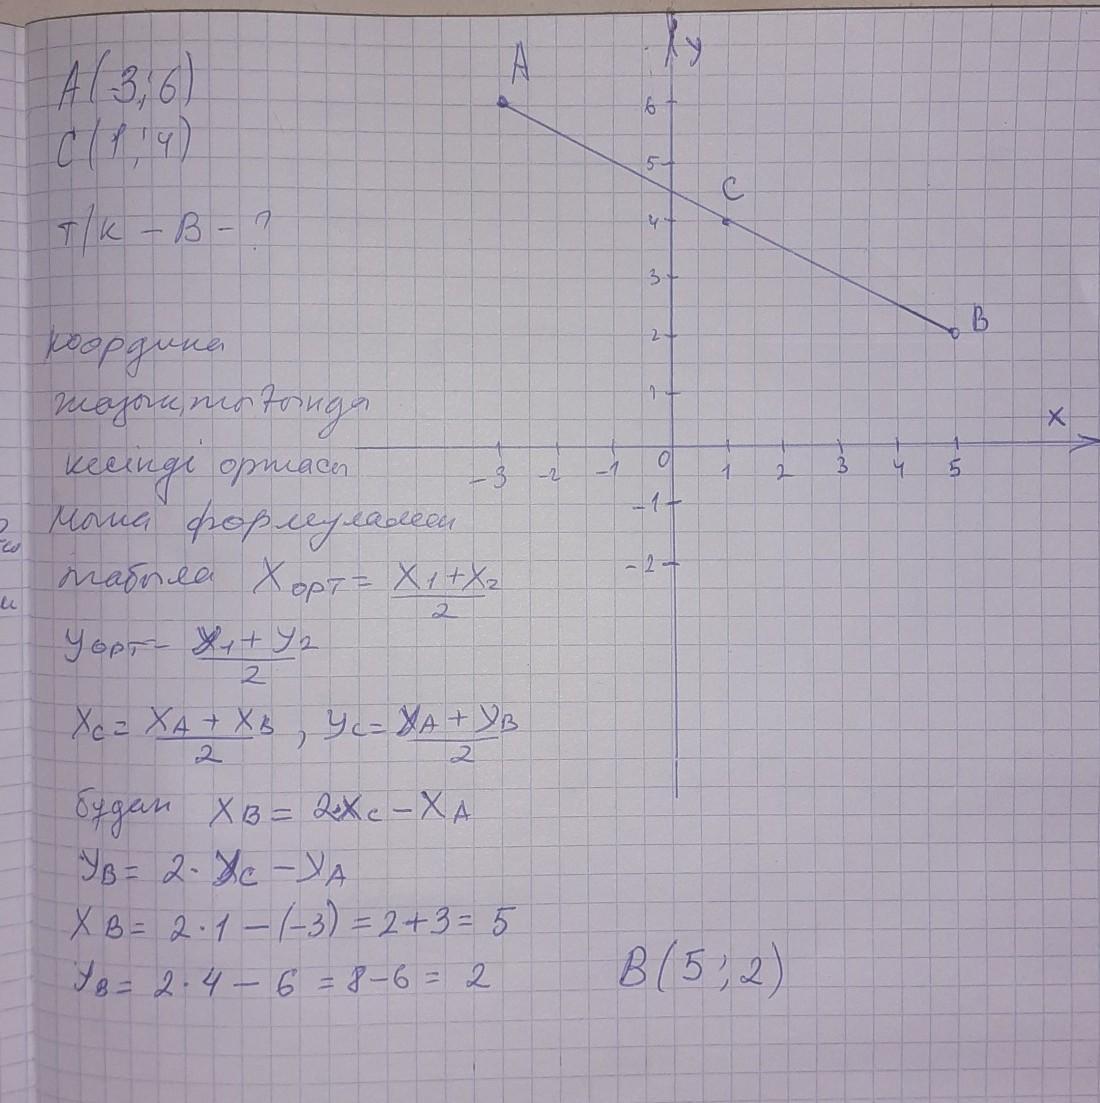 A(-3; 6)
C(1; 4)
т/к - B - ?
координа
жазықтығында
кесінді ортасы
мына формуламен
табыла Xорт = X₁+X₂/2
Yорт = Y₁+Y₂/2
Xc = XA + XB/2, Yc = YA + YB/2
бұдан XB = 2·Xc - XA
YB = 2·Yc - YA
XB = 2·1 - (-3) = 2+3 = 5
YB = 2·4 - 6 = 8-6 = 2
B(5; 2)
A
y
6
5
C
4
3
B
2
1
x
-3 -2 -1 0 1 2 3 4 5
-1
-2